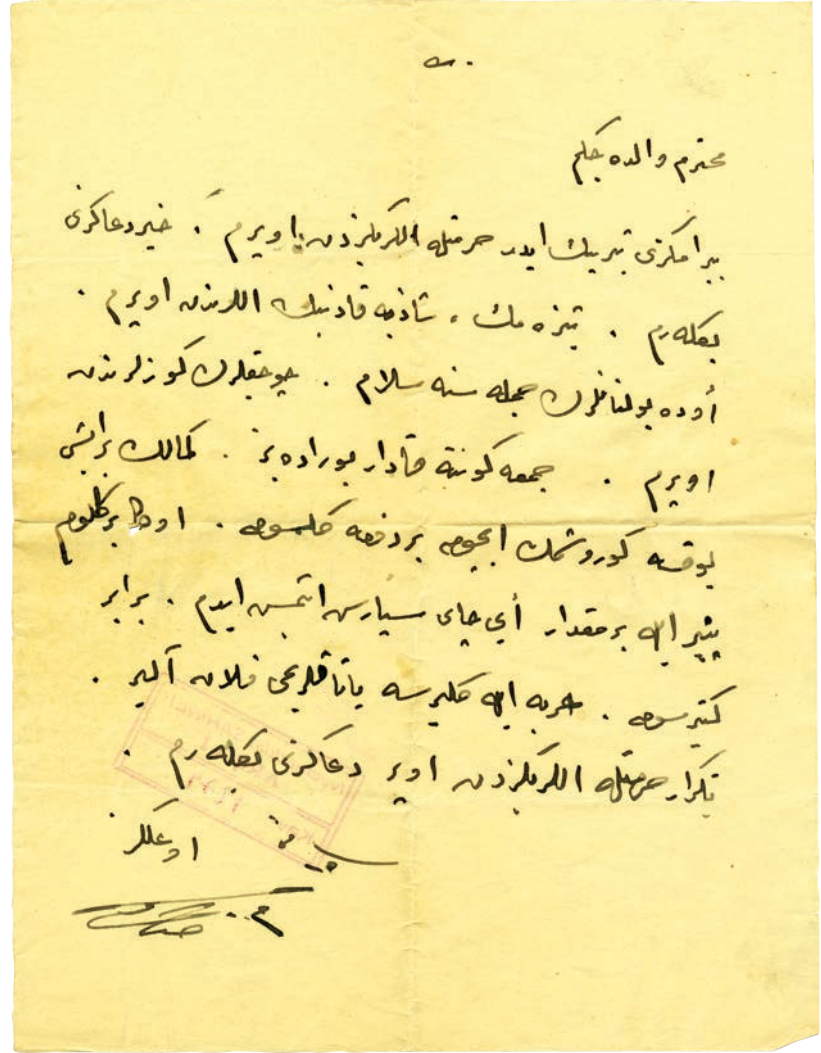 محترم والده‌جكم
بيرامكزى تبريك ايدر حرمتله اللريكزدن اوپرم . خير دعاكزى
بكله‌رم . تيزه مك ، شاذيه قادينك اللرندن اوپرم .
أوده بولنانلرك جمله سنه سلام . چوجقلرك كوزلرندن
اوپرم . جمعه كونينه قادار بوراده يز . كمالك بر ايشى
يوقسه كوروشمك ايچون بر دفعه كلسون . اوكا بر كيلو
پينير ايله بر مقدار أيى چاى سپارش ايتمش ايدم . برابر
كتيرسون . عربه ايله كليرسه ياتاقلريمى فلان آلير .
تكرار حرمتله اللريكزدن اوپر دعاكزى بكله‌رم .
اوغلكز